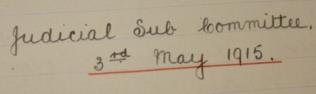 Judicial Sub Committee.
3rd May 1915.